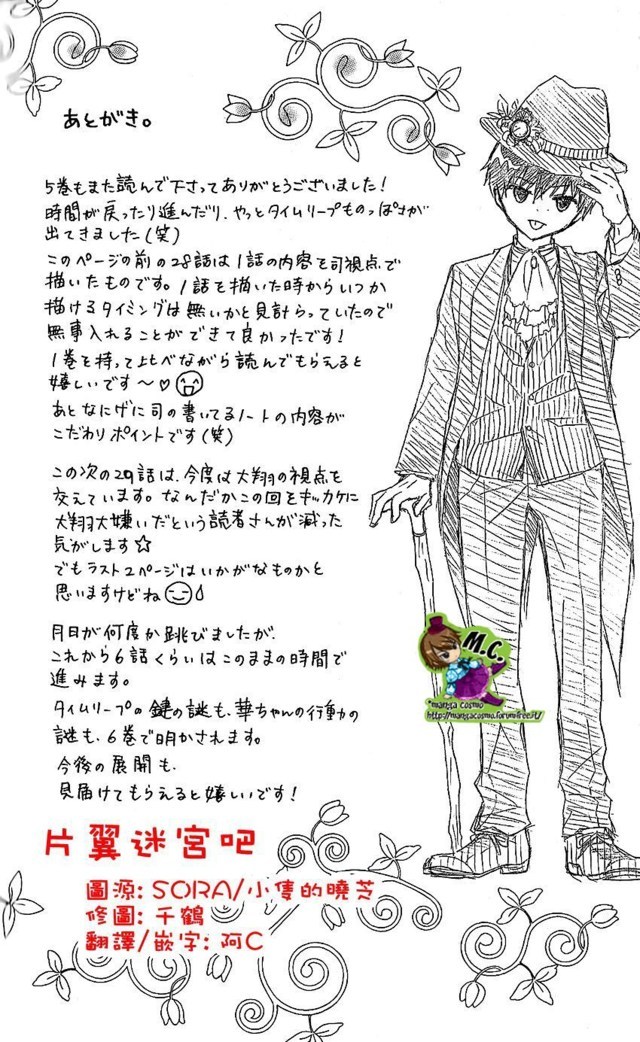 あとがき。
5巻もまた読んで下さってありがとうございました!
時間が戻ったり進んだり、やっとタイムリープものっぽさが
出てきました(笑)
このページの前の28話は1話の内容を司視点で
描いたものです。1話を描いた時からいつか
描けるタイミングは無いかと見計らっていたので
無事入れることができて良かったです!
1巻を持って比べながら読んでもらえると
嬉しいです〜♡
あとなにげに司の書いてるノートの内容が
こだわりポイントです(笑)
この次の29話は、今度は大翔の視点を
交えています。なんだかこの回をキッカケに
大翔大嫌いだという読者さんが減った
気がします☆
でもラスト2ページはいかがなものかと
思いますけどね
月日が何度か跳びましたが、
これから6話くらいはこのままの時間で
進みます。
タイムリープの鍵の謎も、華ちゃんの行動の
謎も、6巻で明かされます。
今後の展開も、
見届けてもらえると嬉しいです!
M.C.
*manga cosmo
片翼迷宮吧
圖源: SORA/小隻的曉芝
修圖: 千鶴
翻譯/嵌字: 阿C